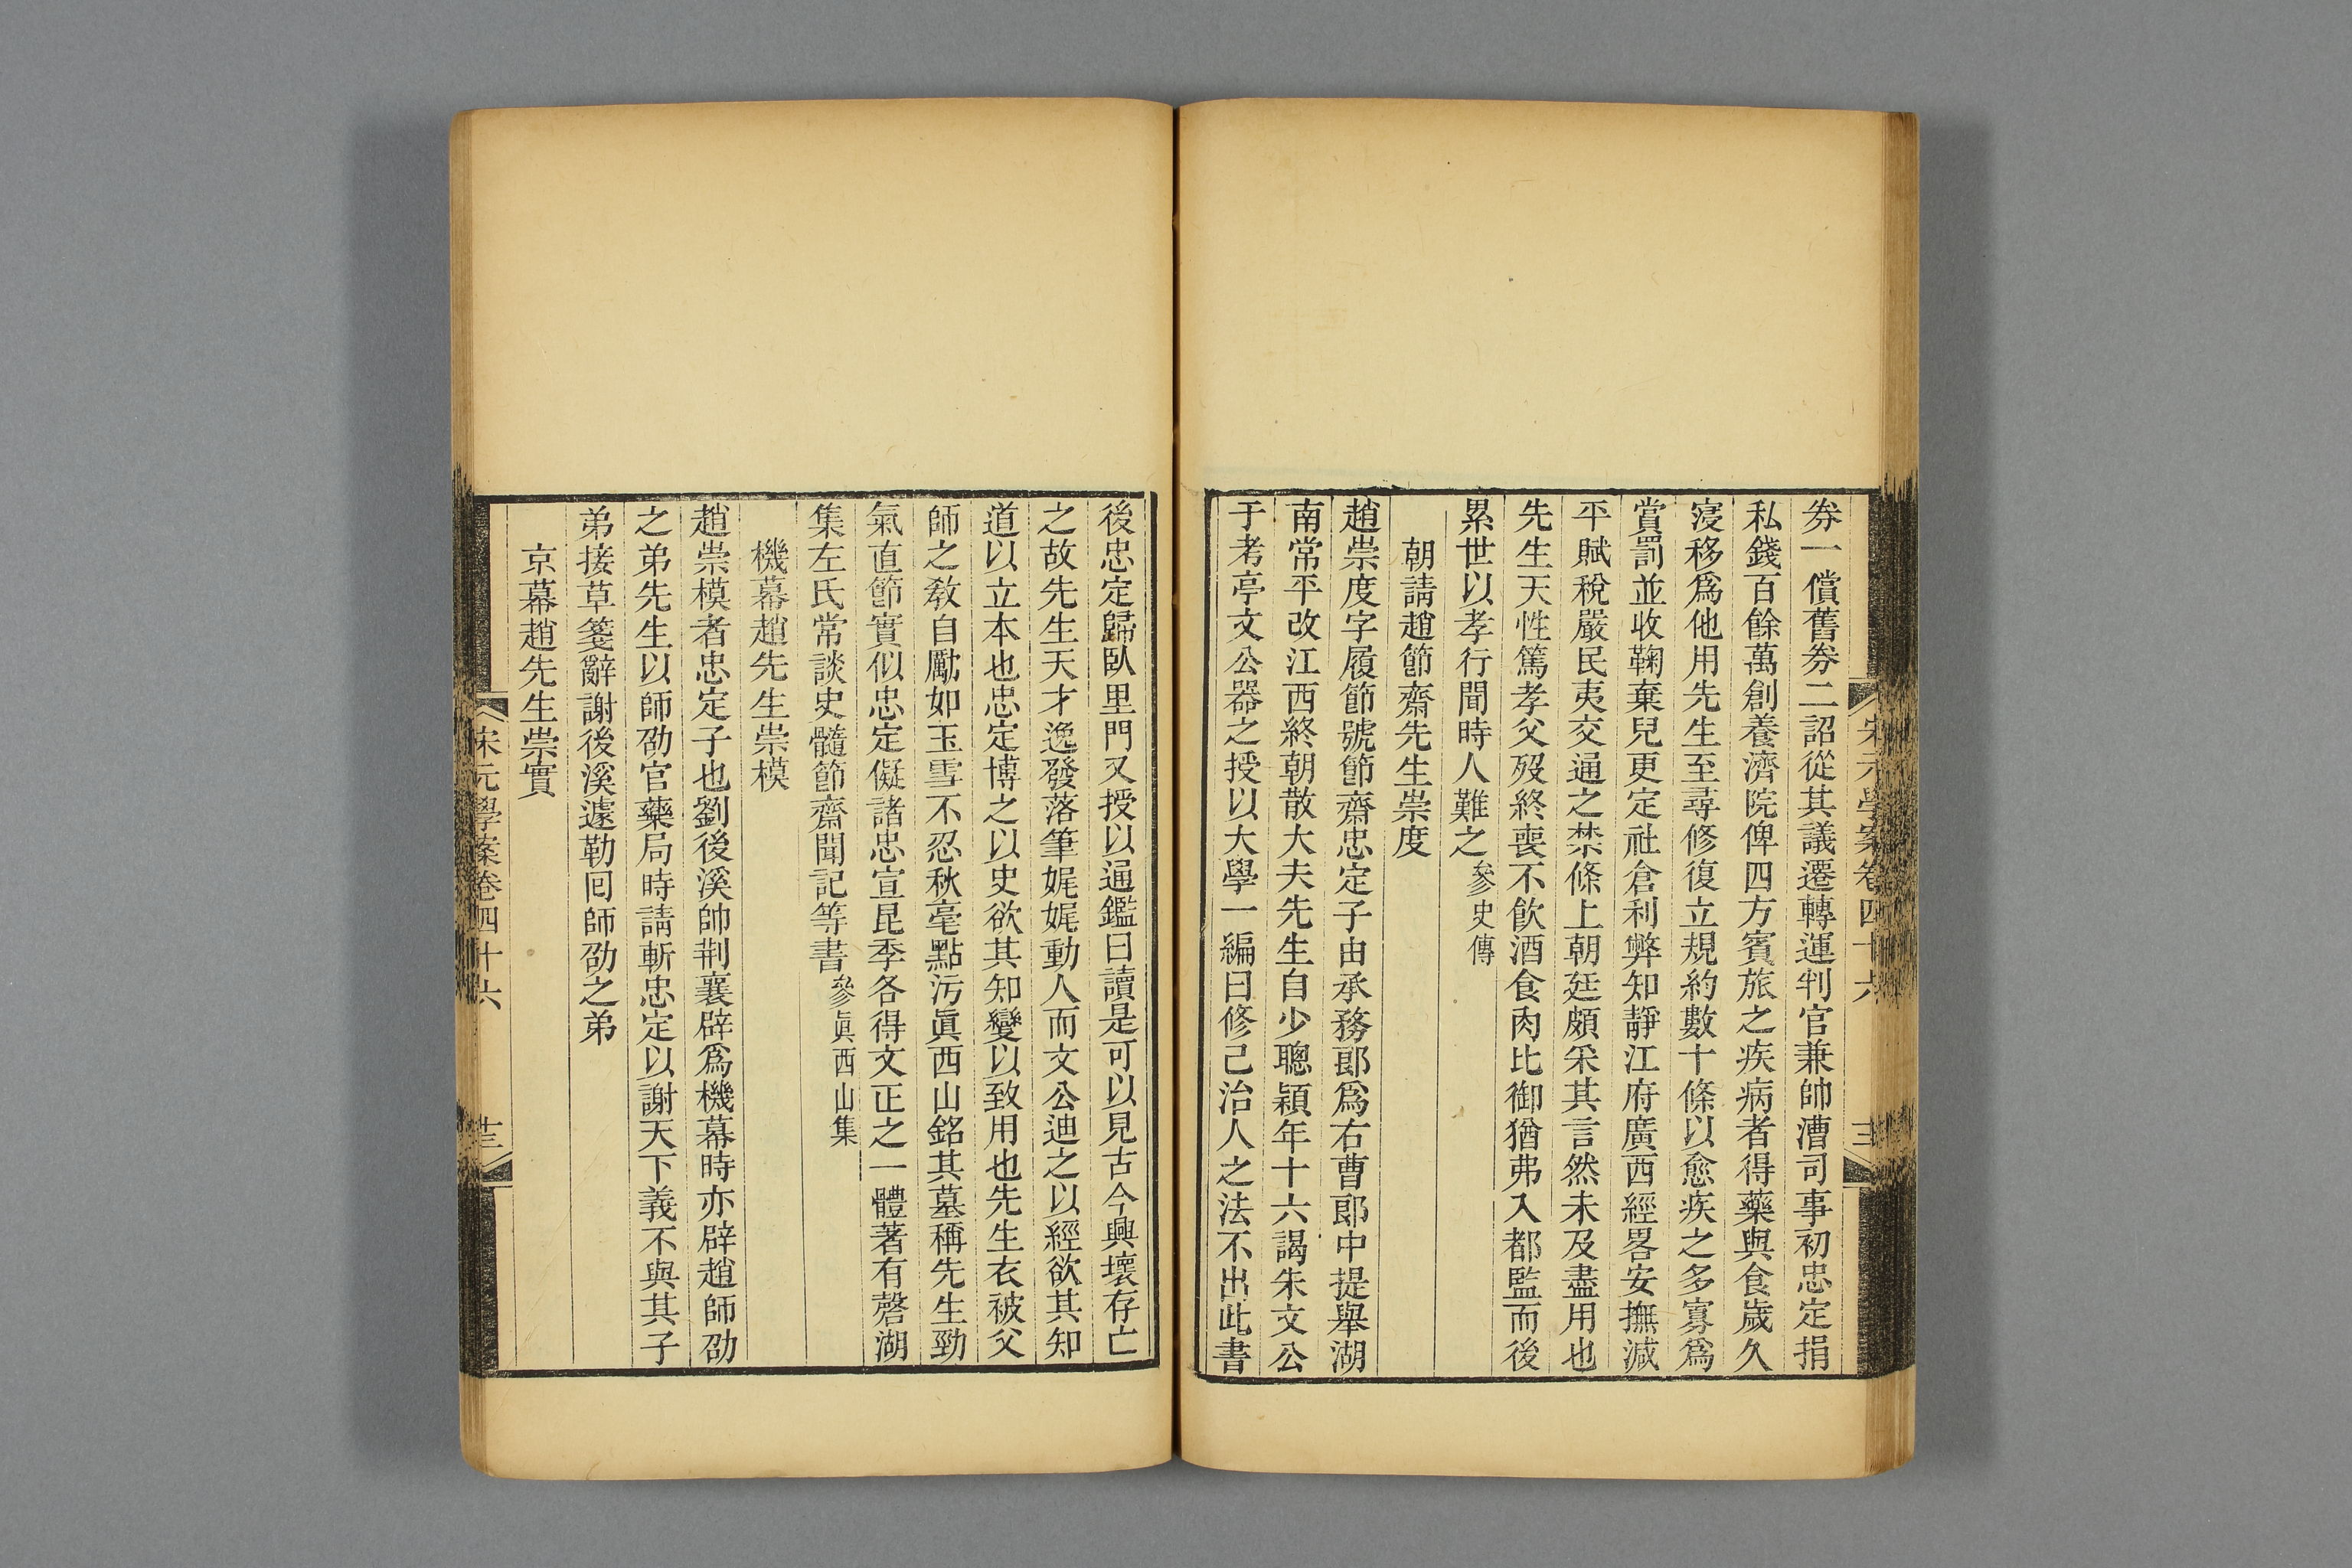 宋元學案卷四十六
券一償舊券二詔從其議遷轉運判官兼帥漕司事初忠定捐
私錢百餘萬創養濟院俾四方賓旅之疾病者得藥與食歲久
寖移爲他用先生至尋修復立規約數十條以愈疾之多寡爲
賞罰並收鞠棄兒更定社倉利弊知靜江府廣西經畧安撫減
平賦稅嚴民夷交通之禁條上朝廷頗采其言然未及盡用也
先生天性篤孝父歿終喪不飲酒食肉比御猶弗入都監而後
累世以孝行聞時人難之參史傳
朝請趙節齋先生崇度
趙崇度字履節號節齋忠定子由承務郞爲右曹郞中提舉湖
南常平改江西終朝散大夫先生自少聰穎年十六謁朱文公
于考亭文公器之授以大學一編曰修己治人之法不出此書
後忠定歸臥里門又授以通鑑曰讀是可以見古今興壞存亡
之故先生天才逸發落筆娓娓動人而文公迪之以經欲其知
道以立本也忠定博之以史欲其知變以致用也先生衣被父
師之敎自勵如玉雪不忍秋毫點污眞西山銘其墓稱先生勁
氣直節實似忠定儗諸忠宣昆季各得文正之一體著有磬湖
集左氏常談史髓節齋聞記等書參眞西山集
機幕趙先生崇模
趙崇模者忠定子也劉後溪帥荆襄辟爲機幕時亦辟趙師劭
之弟先生以師劭官藥局時請斬忠定以謝天下義不與其子
弟接草箋辭謝後溪遽勒囘師劭之弟
京幕趙先生崇實
宋元學案卷四十六